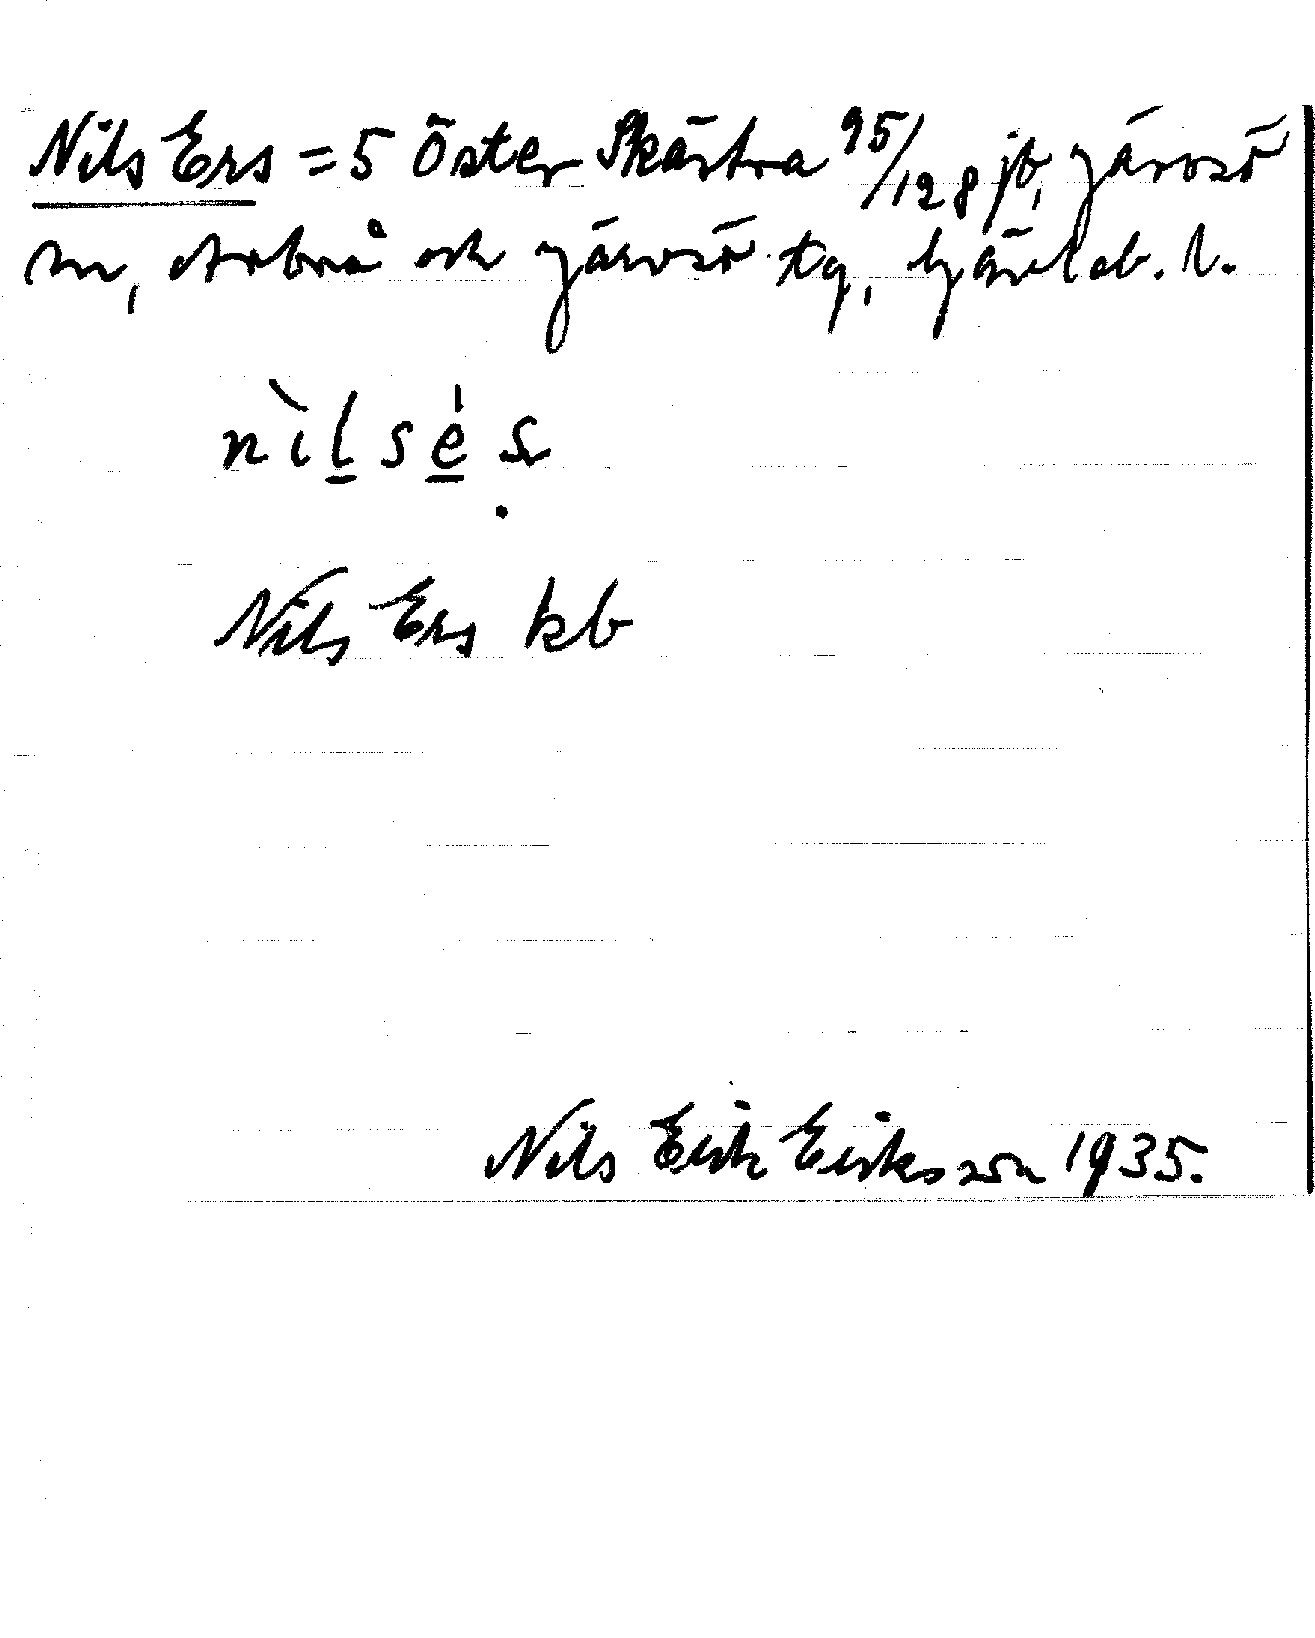 Nils Ers = 5 Öster Skästra 95/128 jb, Järvsö
sn, Arbrå och Järvsö tg, Gävleb. l.
nìlsés
Nils Ers kb
Nils Erik Eriksson 1935.